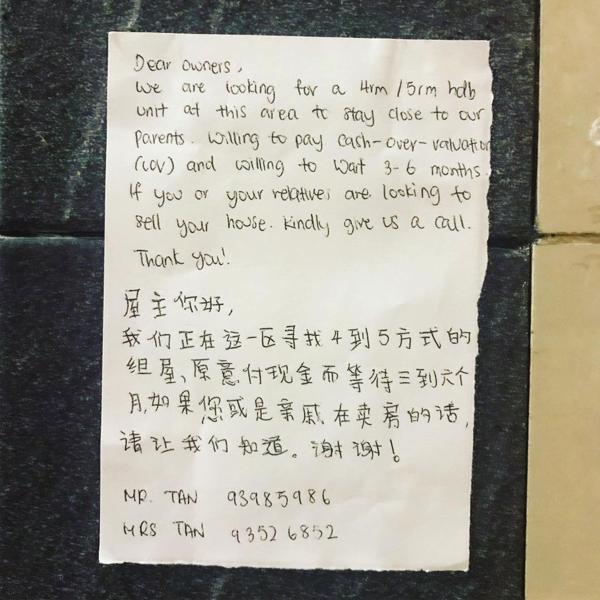 Dear owners,
We are looking for a 4rm /5rm hdb
unit at this area to stay close to our
parents. Willing to pay cash-over-valuation
(COV) and willing to wait 3-6 months.
If you or your relatives are looking to
sell your house. Kindly give us a call.
Thank you!
屋主你好,
我们正在这一区寻找4到5方式的
组屋、原意付现金而等待三到六个
月,如果您或是亲戚在卖房的话,
请让我们知道。谢谢!
MR. TAN 93985986
MRS TAN 93526852